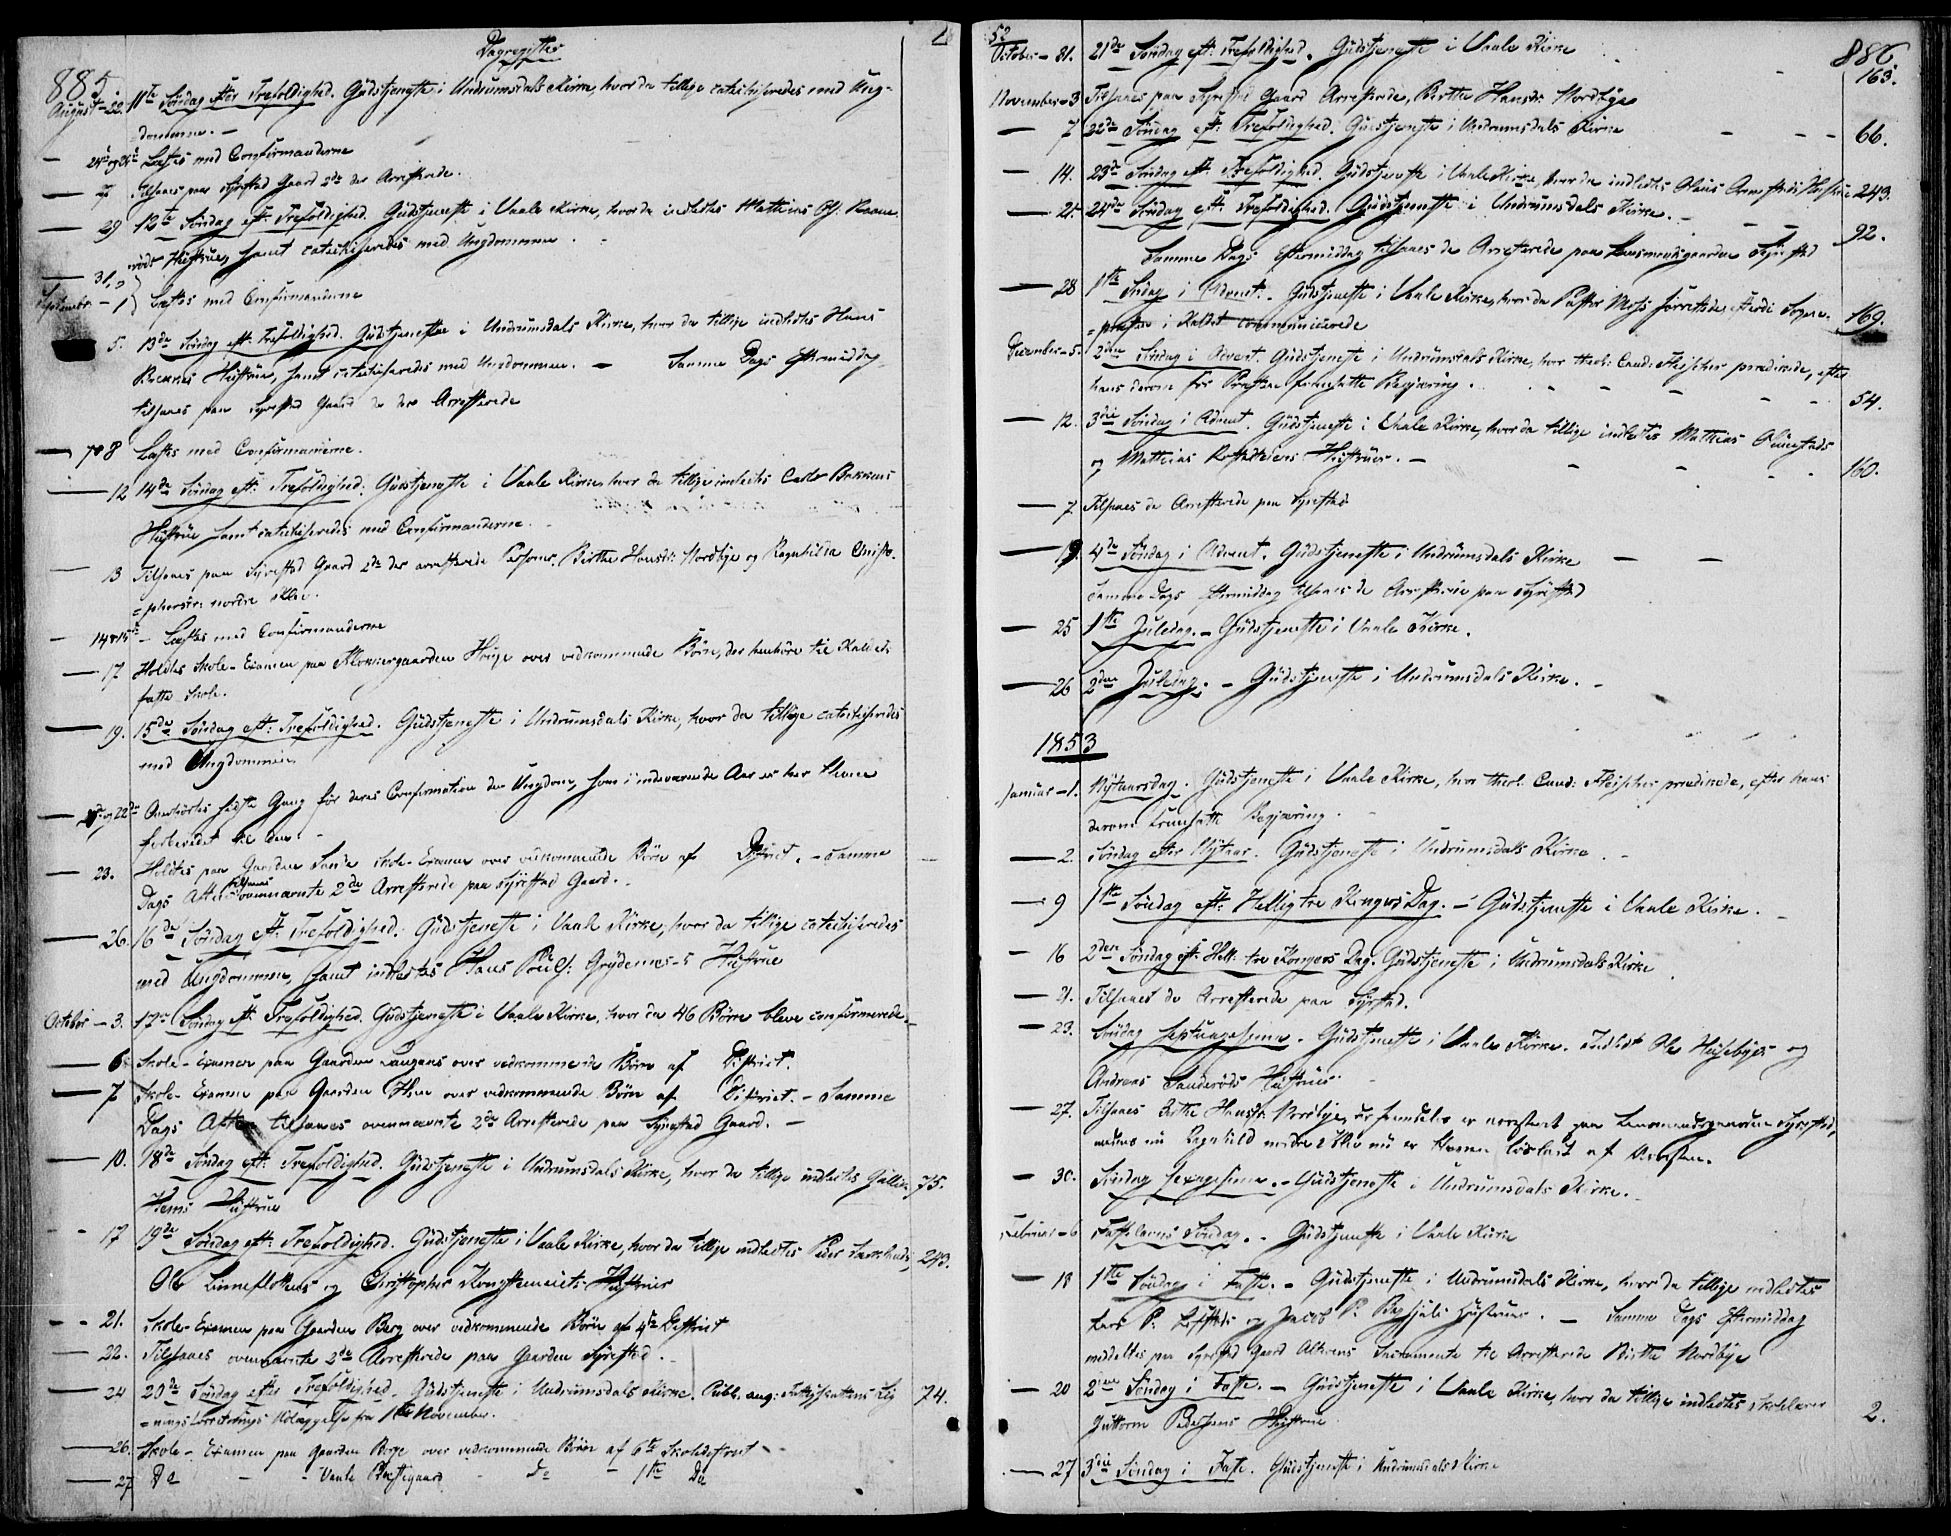 Dagregister
885
August - 22. 11te Søndag efter Trefoldighed. Gudstjeneste i Undrumsdals Kirke, hvor da tillige catechiseredes med Ung-
dommen. -
24de og 25de Læstes med Confirmanderne
27 Tilsaaes paa Syrestad Gaard 2de der Arresterede.
29 12te Søndag eft: Trefoldighed. Gudstjeneste i Vaale Kirke, hvor da indledtes Mathias
Hustrue, samt catechiseredes med Ungdommen.
31, &
September - 1 } Læstes med Confirmanderne
5. 13de Søndag eft: Trefoldighed. Gudstjeneste i Undrumsdals Kirke, hvor da tillige indledtes Hans
Hustrue, samt catechiseredes med Ungdommen. - Samme Dags Eftermiddag
tilsaaes paa Syrestad Gaard de der Arresterede
7 & 8 Læstes med Confirmanderne.
12 14de Søndag eft: Trefoldighed. Gudstjeneste i Vaale Kirke, hvor da tillige indledtes Bakkens
Hustrue samt catechiseredes med Confirmanderne.
13 Tilsaaes paa Syrestad Gaard 2de der arresterede Personer, Birthe Hansdr: Nordbye og Ragnhilda Christo-
=phersdr: nordre
14 & 15de - Læstes med Confirmanderne
17 Holdtes Skole-Examen paa Klokkergaarden Houge over vedkommende Børn, der henhøre til Kaldets
faste Skole.
19. 15de Søndag eft: Trefoldighed. Gudstjeneste i Undrumsdals Kirke, hvor da tillige catechiseredes
med Ungdommen
og 22de Overhørtes sidste Gang før deres Confirmation den Ungdom, som i indeværende Aar er her bleven
forberedet til den.
23. Holdtes paa Gaarden Sande Skole-Examen over vedkommende Børn af District. - Samme
Dags Aften tilsaaes ovennævnte 2de Arresterede paa Syrestad Gaard.
26. 16de Søndag eft: Trefoldighed. Gudstjeneste i Vaale Kirke, hvor da tillige catechiseredes
med Ungdommen, samt indledtes Hans Hustrue
October - 3. 17de Søndag eft: Trefoldighed. Gudstjeneste i Vaale Kirke, hvor da 46 Børn bleve confirmerede.
6. Skole-Examen paa Gaarden Langaas over vedkommende Børn af District.
7 Skole-Examen paa Gaarden over vedkommende Børn af District. - Samme
Dags Aften tilsaaes ovennævnte 2de Arresterede paa Syrestad Gaard. -
10. 18de Søndag eft: Trefoldighed. Gudstjeneste i Undrumsdals Kirke, hvor da tillige indledtes 75.
Hustrue
17 19de Søndag eft: Trefoldighed. Gudstjeneste i Vaale Kirke, hvor da tillige indledtes Peder 243.
Ole og Christopher Hustruer
21. Skole-Examen paa Gaarden Berg over vedkommende Børn af 4de District
22. Tilsaaes ovennævnte 2de Arresterede paa Gaarden Syrestad.
24 20de Søndag efter Trefoldighed. Gudstjeneste i Undrumsdals Kirke. Publ. ang: 74.
fra 1ste November.
26. Skole-Examen paa Gaarden Borge over vedkommende Børn af 6te Skoledistrict
27 Do - Vaale Præstegaard - do - 1ste Do
52
886
October - 31. 21de Søndag eft: Trefoldighed. Gudstjeneste i Vaale Kirke 163.
November - 3 Tilsaaes paa Syrestad Gaard Arresterede, Birthe Hansdr: Nordbye
7 22de Søndag eft: Trefoldighed. Gudstjeneste i Undrumsdals Kirke 66.
14. 23de Søndag eft: Trefoldighed. Gudstjeneste i Vaale Kirke, hvor da indledtes Hustrue 243.
21. 24de Søndag eft: Trefoldighed. Gudstjeneste i Undrumsdals Kirke. 92.
Samme Dags Eftermiddag tilsaaes de Arresterede paa Lensmandsgaarden Syrestad
28 1ste Søndag i Advent. Gudstjeneste i Vaale Kirke, hvor da Pastor Moss forrettede, efterdi Sogne-
=præsten i Kaldet communicerede 169.
December - 5. 2den Søndag i Advent. Gudstjeneste i Undrumsdals Kirke, hvor theol: Cand: Fleischer prædikede, efter
hans derom for Præsten fremsatte Begjæring. 54.
12. 3die Søndag i Advent. Gudstjeneste i Vaale Kirke, hvor da tillige indledtes Mathias
og Mathias Hustruer. - 160.
7. Tilsaaes de Arresterede paa Syrestad
19. 4de Søndag i Advent. Gudstjeneste i Undrumsdals Kirke
Samme Dags Eftermiddag tilsaaes de Arresterede paa Syrestad
25 1ste Juledag. - Gudstjeneste i Vaale Kirke.
26 2den Juledag. - Gudstjeneste i Undrumsdals Kirke. -
1853
Januar - 1. Nytaarsdag. Gudstjeneste i Vaale Kirke, hvor theol. Cand: Fleischer prædikede, efter hans
derom fremsatte Begjæring.
2. Søndag efter Nytaar. Gudstjeneste i Undrumsdals Kirke.
9 1ste Søndag eft: Hellig tre Kongers Dag. - Gudstjeneste i Vaale Kirke. -
16 2den Søndag eft: Hell: tre Kongers Dag. Gudstjeneste i Undrumsdals Kirke
21. Tilsaaes de Arresterede paa Syrestad.
23. Søndag Septuagesima. - Gudstjeneste i Vaale Kirke. Indledt Ole Husebyes og
Andreas Sanderøds Hustruer.
27. Tilsaaes Birthe Hansdr: Nordbye, der fremdeles er arresteret paa Lensmandsgaarden Syrestad,
Ragnhild nordre nu er bleven løsladt af Arresten.
30. Søndag Sexagesima. - Gudstjeneste i Undrumsdals Kirke.
Februar - 6 Fastelavns Søndag. - Gudstjeneste i Vaale Kirke
13 1ste Søndag i Faste. - Gudstjeneste i Undrumsdals Kirke, hvor da tillige indledtes
Lars P: og Jacob P: Hustruer. - Samme Dags Eftermiddag
meddeltes paa Syrestad Gaard Alterens Sacramente til Arresterede Birthe Nordbye
20 2den Søndag i Faste. - Gudstjeneste i Vaale Kirke, hvor da tillige indledtes Skolelærer
Guttorm Pedersens Hustrue. 2.
27 3die Søndag i Faste. Gudstjeneste i Undrumsdals Kirke